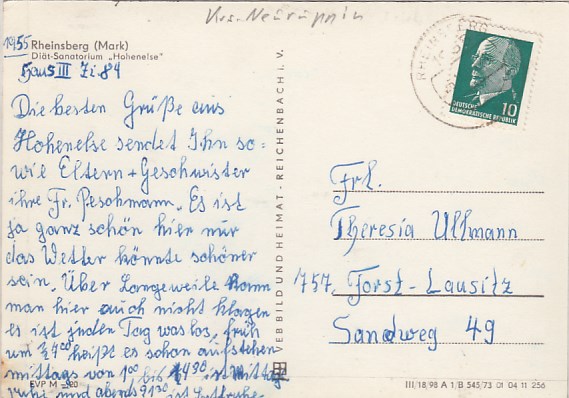 Krs. Neuruppin
1955 Rheinsberg (Mark)
Diät-Sanatorium „Hohenelse"
Haus III Zi. 84
Die besten Grüße aus
Hohenelse sendet Ihn so=
wie Eltern + Geschwister
ihre Fr. Peschmann. Es ist
ja ganz schön hier nur
das Wetter könnte schöner
sein. Über Langeweile kann
man hier auch nicht klagen
es ist jeden Tag was los, früh
um 1/2 7 00 heißt es schon aufstehen
mittags von 1 00 bis 1/2 4 30 ist Mittag
ruhe und abends 9 30 ist Bettruhe
EVP M -,20
VEB BILD UND HEIMAT · REICHENBACH i. V.
RHEINSBERG
DEUTSCHE
DEMOKRATISCHE REPUBLIK
10
Frl.
Theresia Ullmann
757, Forst-Lausitz
Sandweg 49
III/18/98 A 1/B 545/73 01 04 11 256